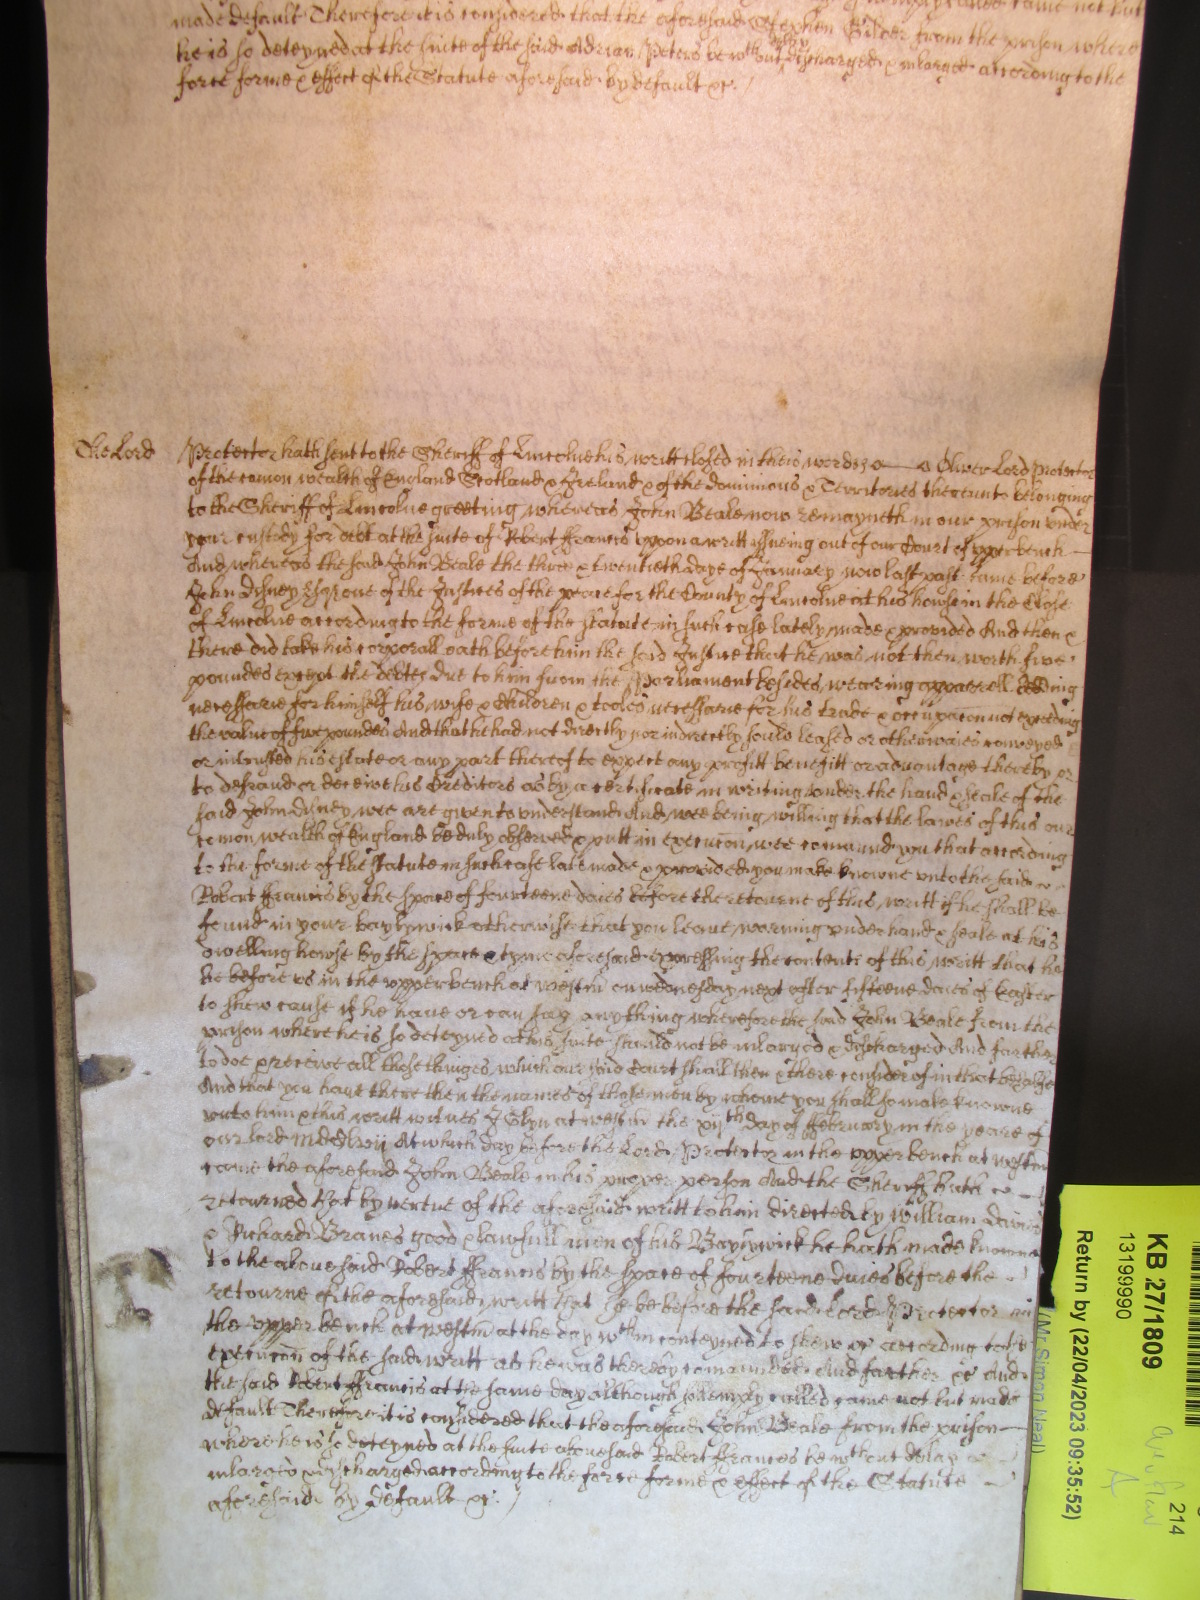 made default Therefore it is considered that the aforesaid Stephen Bilver from the prison where
he is so deteyned at the suite of the said Adrian Peters be wthout delay discharged & inlarged according to the
force forme & effect of the Statute aforesaid by default &c.
The Lord Protector hath sent to the Sheriff of Lincolne his writt closed in theis words Oliver Lord Protector
of the comon wealth of England Scotland & Ireland & of the dominions & Territories thereunto belonging
to the Sheriff of Lincolne greeting whereas John Beale now remayneth in our prison under
your custody for debt at the suite of Robert ffrancis uppon a writt issueing out of our Court of upper bench
And whereas the said John Beale the three & twentieth daye of January now last past came before
John Disney Esqr one of the Justices of the peace for the County of Lincolne at his howse in the Close
of Lincolne according to the forme of the statute in such case lately made & provided And then &
there did take his corporall oath before him the said Justice that he was not then worth five
poundes except the debtes due to him from the Parliament besides wearing apparrell bedding
necessarie for himself his wife & children & tooles necessarie for his trade & occupacon not exceeding
the value of five poundes And that he had not directly nor indirectly sould leased or otherwaies conveyed
or intrusted his estate or any part thereof to expect any profitt benefitt or advantage thereby or
to defraud or deceive his Creditors as by a certificate in writing under the hand & seale of the
said John Disney wee are given to understand And wee being willing that the lawes of this our
comon wealth of England be duly observed & putt in execucon wee comaund you that according
to the forme of the statute in such case late made & provided you make knowne unto the said
Robert ffrancis by the space of fourteene daies before the retourne of this writt if he shall be
found in your baylywick otherwise that you leave warning under hand & seale at his
dwelling howse by the space & tyme aforesaid expressing the contents of this writt that he
be before us in the upper bench at westm on wednesday next after fifteene daies of Easter
to shew cause if he have or can say any thing wherefore the said John Beale from the
prison where he is so deteyned at his suite should not be inlarged & discharged And farther
to doe & receive all those thinges which our said Court shall then & there consider of in that behalfe
And that you have there then the names of those men by whome you shall so make knowne
unto him & this writt witnes J Glyn at westm the xijth day of ffebruary in the yeare of
our lord At which day before the Lord Protector in the upper bench at westm
came the aforesaid John Beale in his proper person And the Sheriff hath
retourned that by vertue of the aforesaid writt to him directed by William
& Richard good & lawfull men of his Bayliwick he hath made knowne
to the abovesaid Robert ffrancis by the space of fourteene daies before the
retourne of the aforesaid writt that he be before the said Lord Protector in
the upper bench at westm at the day wthin conteyned to shew &c according to the
execucon of the said writt as he was thereby comaunded And farther &c And
the said Robert ffrancis at the same day although sollemply called came not but made
default Therefore it is considered that the aforesaid John Beale from the prison
where he is so deteyned at the suite abovesaid Robert ffrancis be wthout delay
inlarged & discharged according to the force forme & effect of the Statute
aforesaid by default &c.
KB 27/1809
13199990
Return by (22/04/2023 09:35:52)
(Mr Simon Neal)
214